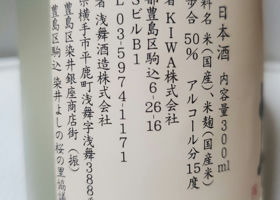 日本酒 内容量300ml
料名 米(国産)、米麹(国産米)
歩合 50% アルコール分15度
者 KIWA株式会社
都豊島区駒込6-26-16
SビルB1
L 03-5974-1171
者 浅舞酒造株式会社
県横手市平鹿町浅舞字浅舞388
豊島区染井銀座商店街(振)
豊島区駒込 染井よしの桜の里協議